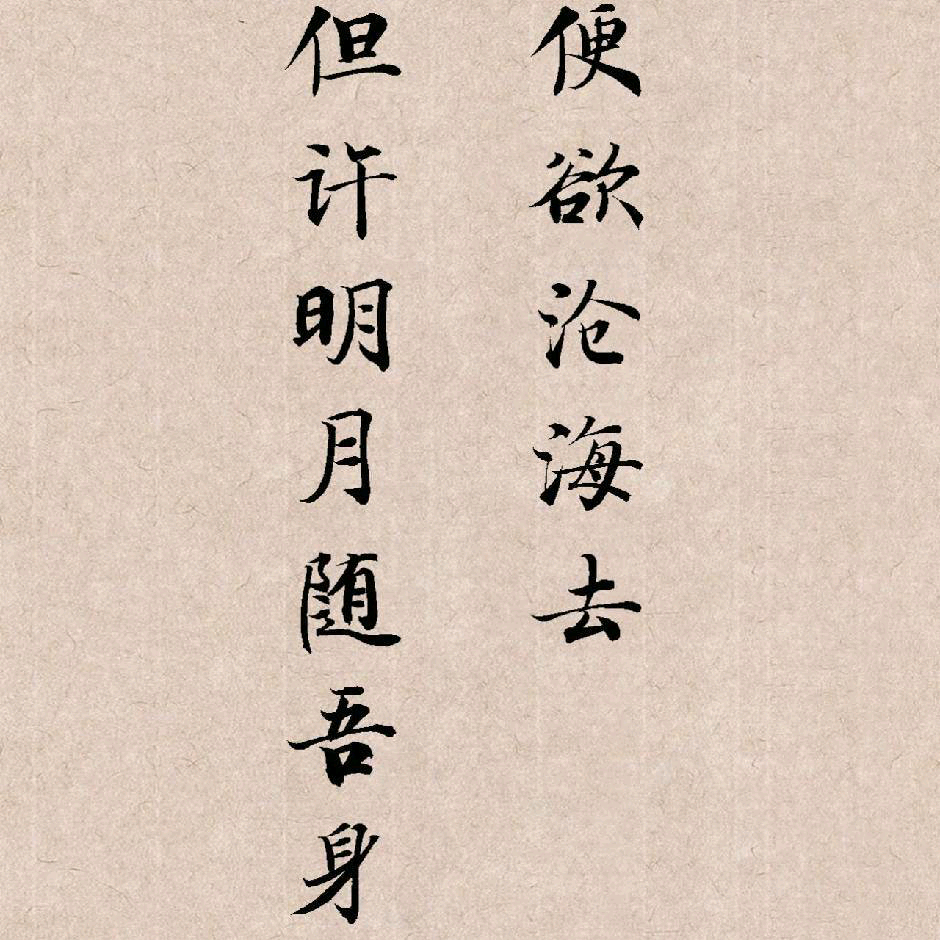 便欲沧海去
但许明月随吾身